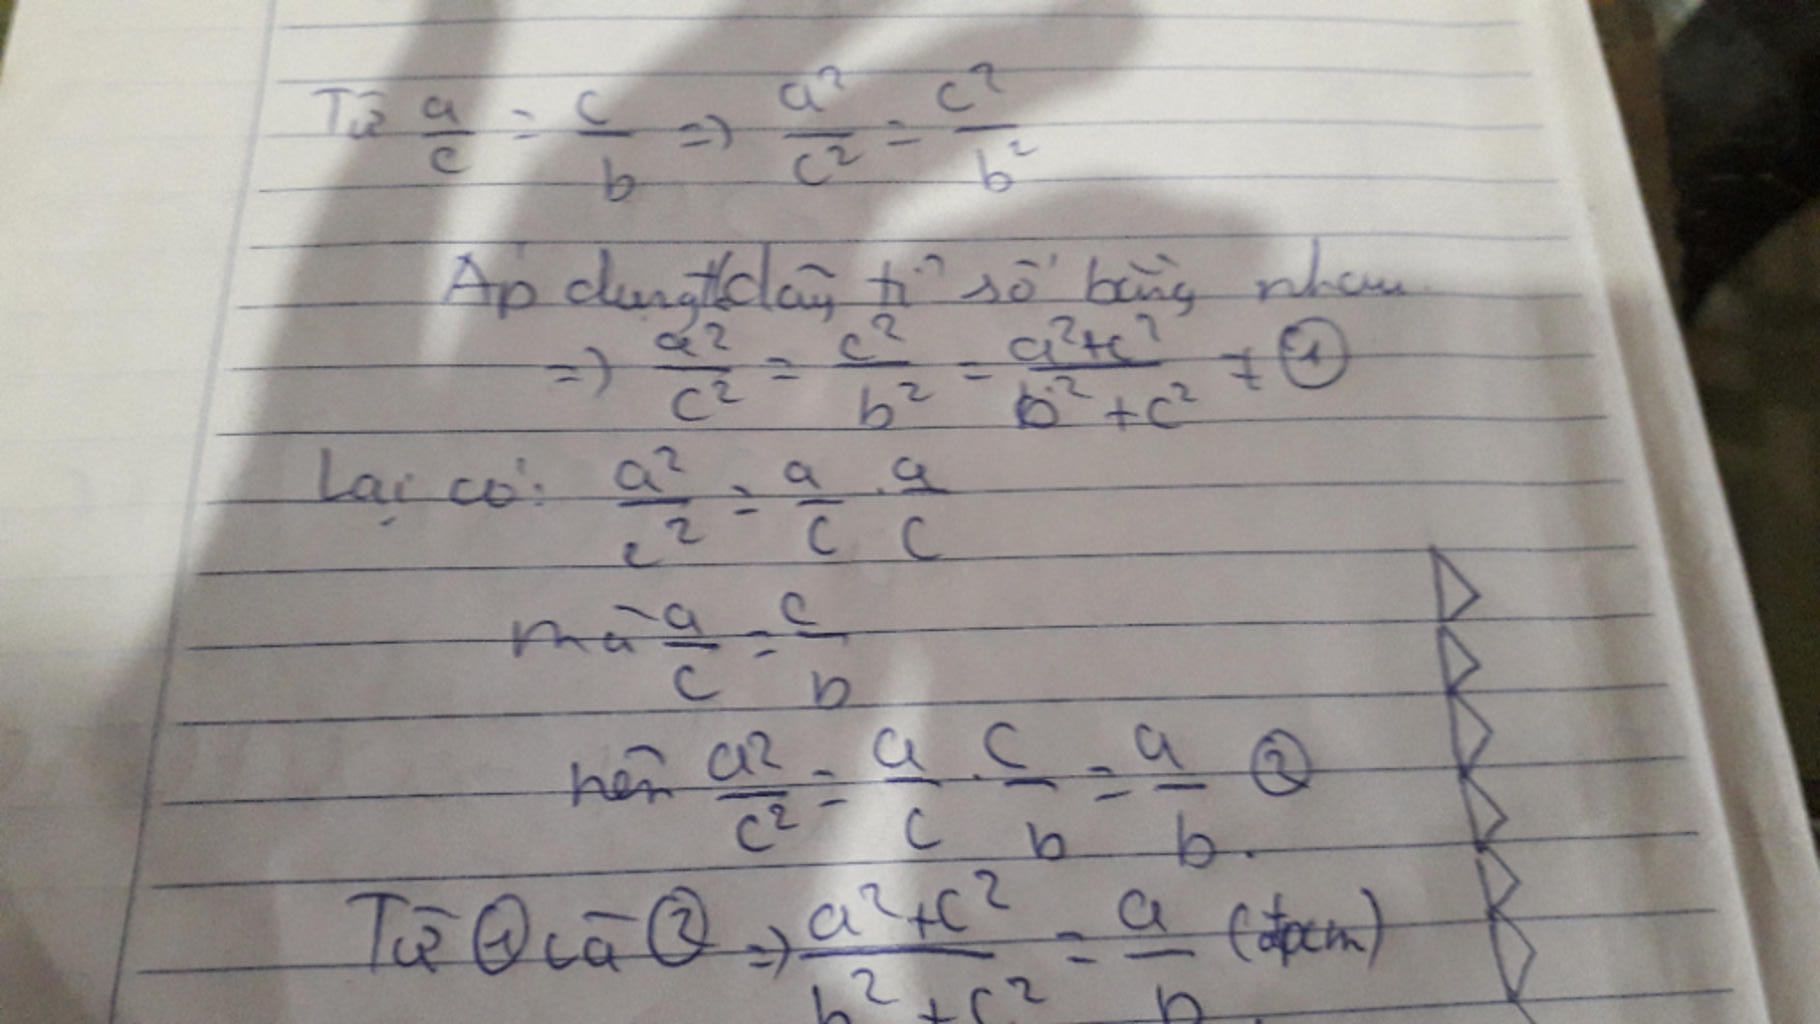 Từ a/c = c/b => a²/c² = c²/b²
Áp dụng t/c dãy tỉ số bằng nhau
=> a²/c² = c²/b² = (a²+c²)/(b²+c²) ①
Lại có: a²/c² = a/c . a/c
mà a/c = c/b
nên a²/c² = a/c . c/b = a/b ②
Từ ① và ② => (a²+c²)/(b²+c²) = a/b (đpcm)